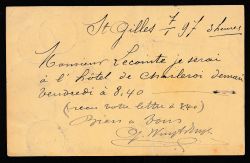 St Gilles 7/1 97 3 heures
Monsieur Lecointe je serai
à l'hôtel de Charleroi demain
vendredi à 8,40
(reçu votre lettre à
Bien à vous